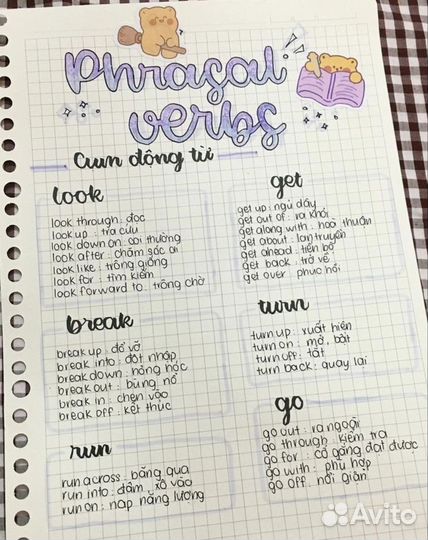 Phrasal
verbs
Cụm động từ
look
look through : đọc
look up : tra cứu
look down on : coi thường
look after : chăm sóc ai
look like : trông giống
look for : tìm kiếm
look forward to : trông chờ
get
get up : ngủ dậy
get out of : ra khỏi
get along with : hoà thuận
get about : lan truyền
get ahead : tiến bộ
get back : trở về
get over : phục hồi
break
break up : đổ vỡ
break into : đột nhập
break down : hỏng hóc
break out : bùng nổ
break in : chen vào
break off : kết thúc
turn
turn up : xuất hiện
turn on : mở, bật
turn off : tắt
turn back : quay lại
run
run across : băng qua
run into : đâm, xô vào
run on : nạp năng lượng
go
go out : ra ngoài
go through : kiểm tra
go for : cố gắng đạt được
go with : phù hợp
go off : nổi giận
Avito